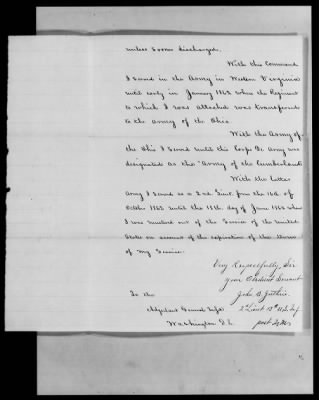 unless sooner discharged.
With this Command
I served in the Army in Western Virginia
until early in January 1862 when the Regiment
to which I was attached was transferred
to the Army of the Ohio.
With the Army of
the Ohio I served until this Corps De Army was
designated as the "Army of the Cumberland"
With the latter
Army I served as a 2nd Lieut. from the 15th of
October 1862 until the 18th day of June 1864 when
I was mustered out of the Service of the United
States on account of the expiration of the term
of my Service.
Very Respectfully, Sir
your Obedient Servant
John B. Guthrie
To the
2d Lieut 13th U.S. Inf
Adjutant General
Washington D.C.